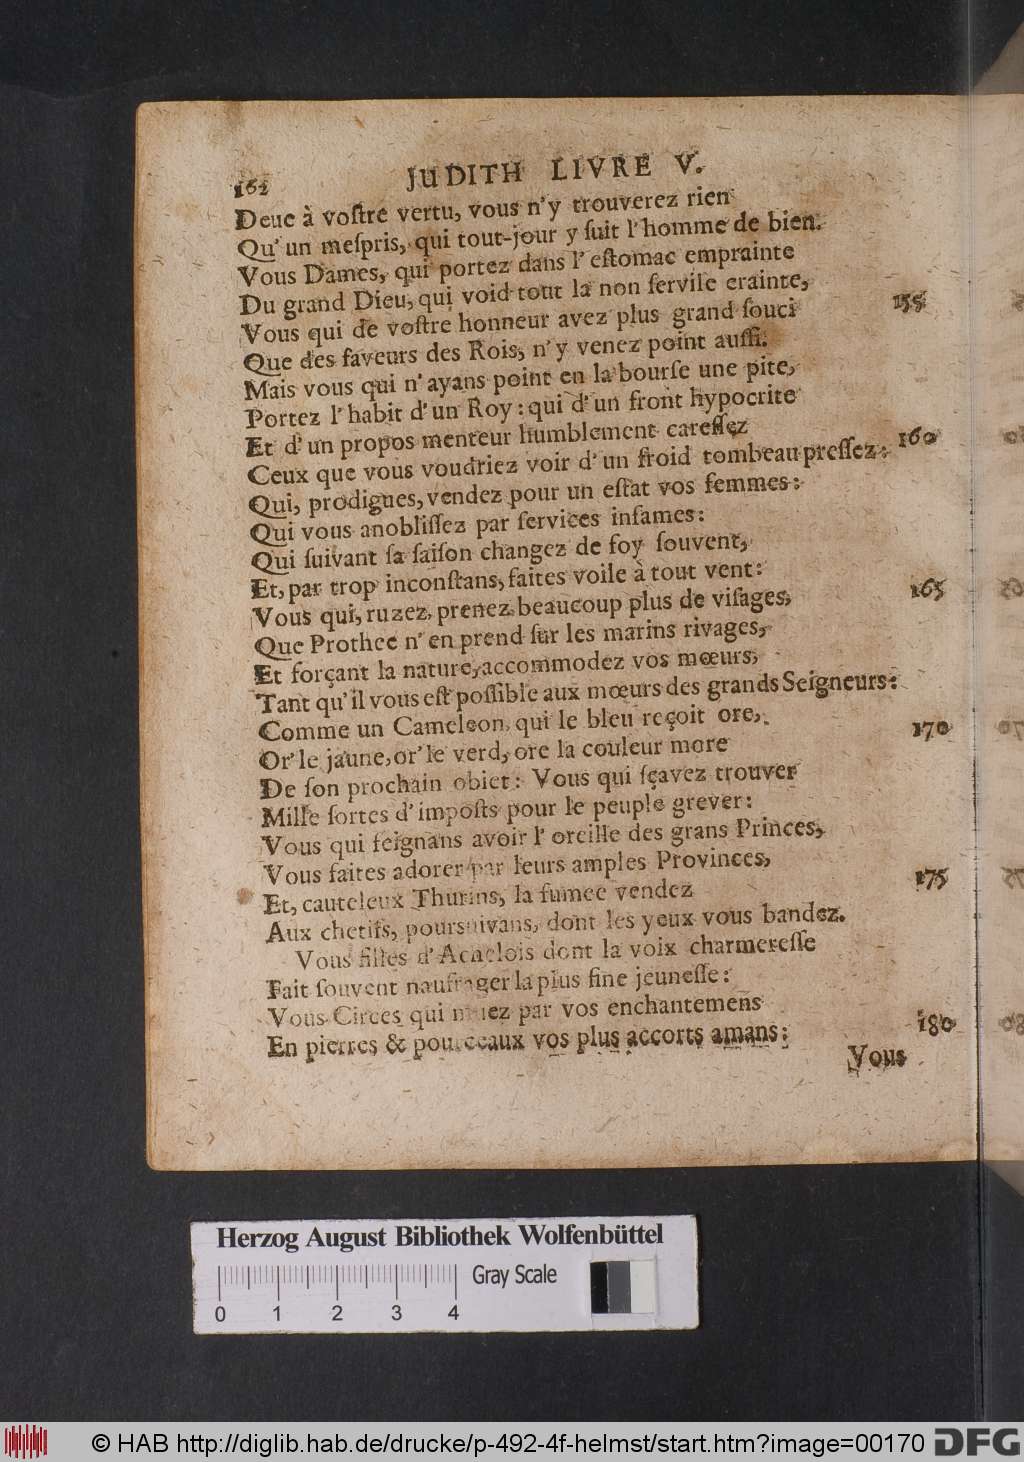 162 JUDITH LIVRE V.
Deuë à voſtre vertu, vous n'y trouverez rien
Qu'un meſpris, qui tout-jour y ſuit l'homme de bien.
Vous Dames, qui portez dans l'eſtomac emprainte
Du grand Dieu, qui void tout la non ſervile crainte,
Vous qui de voſtre honneur avez plus grand ſouci 155
Que des faveurs des Rois, n'y venez point auſſi.
Mais vous qui n'ayans point en la bourſe une pite,
Portez l'habit d'un Roy: qui d'un front hypocrite
Et d'un propos menteur humblement careſſez
Ceux que vous voudriez voir d'un froid tombeau preſſez: 160
Qui, prodigues, vendez pour un eſtat vos femmes:
Qui vous anobliſſez par ſervices infames:
Qui ſuivant ſa ſaiſon changez de foy ſouvent,
Et, par trop inconſtans, faites voile à tout vent:
Vous qui, ruzez, prenez beaucoup plus de viſages, 165
Que Prothee n'en prend ſur les marins rivages,
Et forçant la nature, accommodez vos mœurs,
Tant qu'il vous eſt poſſible aux mœurs des grands Seigneurs:
Comme un Cameleon, qui le bleu reçoit ore,
Or' le jaune, or' le verd, ore la couleur more 170
De ſon prochain obiet: Vous qui ſçavez trouver
Mille ſortes d'impoſts pour le peuple grever:
Vous qui feignans avoir l'oreille des grans Princes,
Vous faites adorer par leurs amples Provinces,
Et, cauteleux Thurins, la fumee vendez 175
Aux chetifs, pourſuivans, dont les yeux vous bandez.
Vous filles d'Achelois dont la voix charmereſſe
Fait ſouvent naufrager la plus fine jeuneſſe:
Vous Circes qui muez par vos enchantemens
En pierres & pourceaux vos plus accorts amans: 180
Vous
Herzog August Bibliothek Wolfenbüttel
0 1 2 3 4 Gray Scale
© HAB http://diglib.hab.de/drucke/p-492-4f-helmst/start.htm?image=00170 DFG